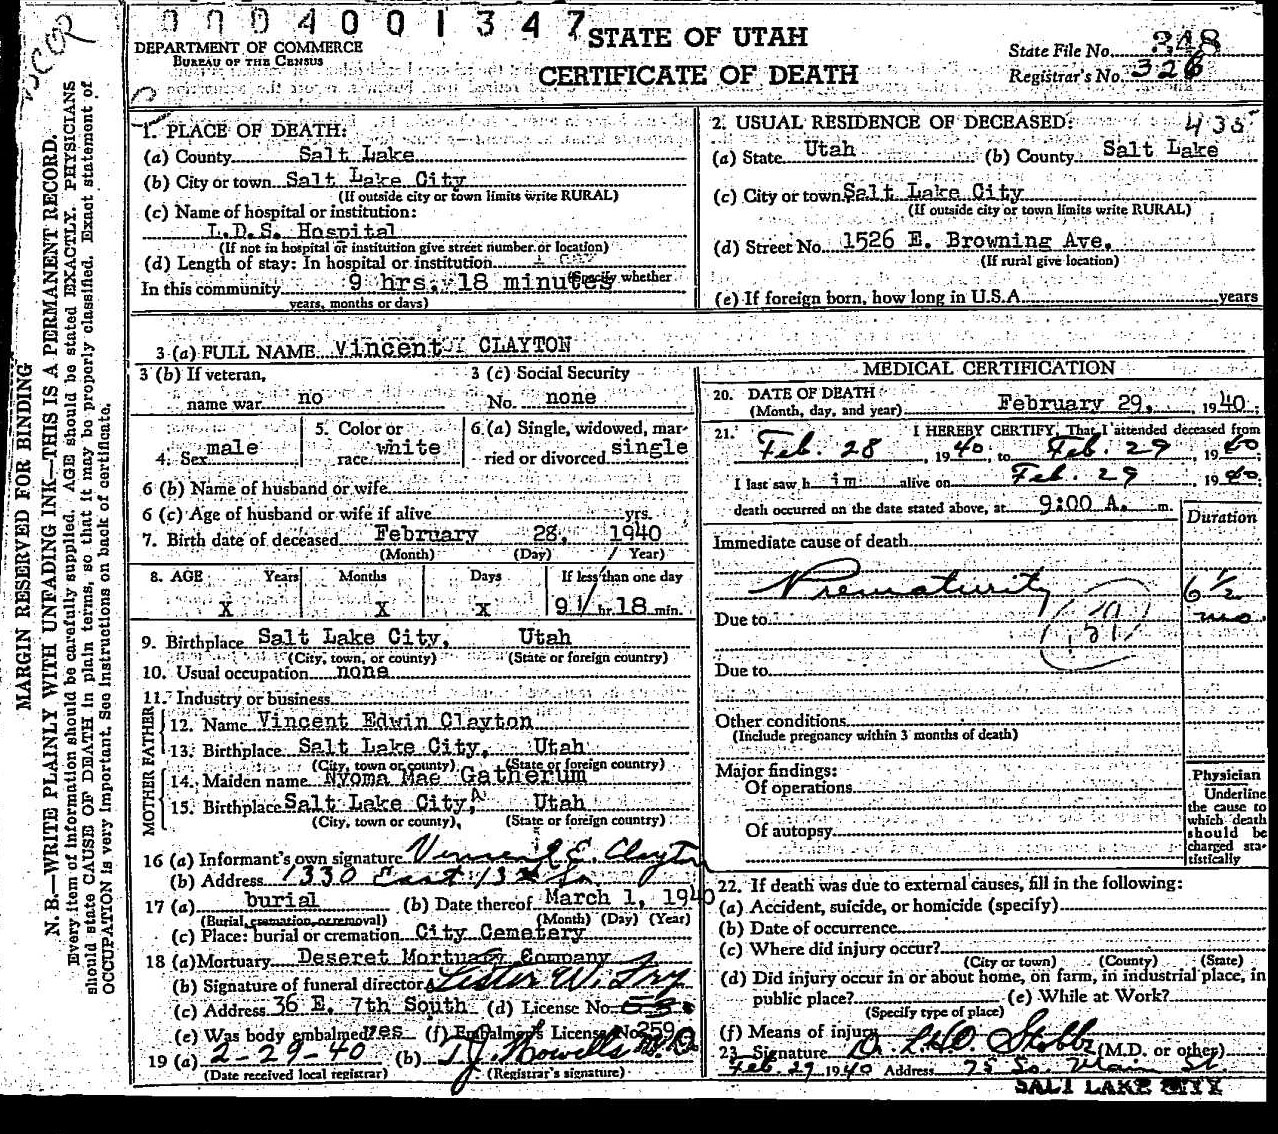 0004001347
DEPARTMENT OF COMMERCE
BUREAU OF THE CENSUS
STATE OF UTAH
CERTIFICATE OF DEATH
State File No. 348
Registrar's No. 326
MARGIN RESERVED FOR BINDING
N. B.—WRITE PLAINLY WITH UNFADING INK—THIS IS A PERMANENT RECORD.
Every item of information should be carefully supplied. AGE should be stated EXACTLY. PHYSICIANS
should state CAUSE OF DEATH in plain terms, so that it may be properly classified. Exact statement of
OCCUPATION is very important. See instructions on back of certificate.
1. PLACE OF DEATH:
(a) County Salt Lake
(b) City or town Salt Lake City
(If outside city or town limits write RURAL)
(c) Name of hospital or institution:
L.D.S. Hospital
(If not in hospital or institution give street number or location)
(d) Length of stay: In hospital or institution
(Specify whether
In this community 9 hrs. 18 minutes
years, months or days)
2. USUAL RESIDENCE OF DECEASED: 435
(a) State Utah (b) County Salt Lake
(c) City or town Salt Lake City
(If outside city or town limits write RURAL)
(d) Street No. 1526 E. Browning Ave.
(If rural give location)
(e) If foreign born, how long in U.S.A. years
3 (a) FULL NAME Vincent CLAYTON
3 (b) If veteran,
name war no
3 (c) Social Security
No. none
4. Sex male
5. Color or
race white
6 (a) Single, widowed, mar-
ried or divorced single
6 (b) Name of husband or wife
6 (c) Age of husband or wife if alive yrs.
7. Birth date of deceased February 28, 1940
(Month) (Day) (Year)
8. AGE Years Months Days If less than one day
X X X 9 hr. 18 min.
9. Birthplace Salt Lake City, Utah
(City, town, or county) (State or foreign country)
10. Usual occupation none
11. Industry or business
FATHER
12. Name Vincent Edwin Clayton
13. Birthplace Salt Lake City, Utah
(City, town or county) (State or foreign country)
MOTHER
14. Maiden name Nyoma Mae Gatherum
15. Birthplace Salt Lake City, Utah
(City, town or county) (State or foreign country)
16 (a) Informant's own signature Vincent E. Clayton
(b) Address 1330 East 13th So
17 (a) burial (b) Date thereof March 1, 1940
(Burial, cremation, or removal) (Month) (Day) (Year)
(c) Place: burial or cremation City Cemetery
18 (a) Mortuary Deseret Mortuary Company
(b) Signature of funeral director Lester W. Fry
(c) Address 36 E. 7th South (d) License No.
(e) Was body embalmed? Yes (f) Embalmer's License No. 259
19 (a) 2-29-40 (b) T.J. Howells M.D.
(Date received local registrar) (Registrar's signature)
MEDICAL CERTIFICATION
20. DATE OF DEATH
(Month, day, and year) February 29, 1940
21. I HEREBY CERTIFY, That I attended deceased from
Feb. 28, 1940, to Feb. 29 1940
I last saw h im alive on Feb. 29 1940
death occurred on the date stated above, at 9:00 A. m.
Duration
Immediate cause of death
Prematurity 6 1/2 mo.
Due to
Due to
Other conditions
(Include pregnancy within 3 months of death)
Major findings:
Of operations
Of autopsy
Physician
Underline
the cause to
which death
should be
charged sta-
tistically
22. If death was due to external causes, fill in the following:
(a) Accident, suicide, or homicide (specify)
(b) Date of occurrence
(c) Where did injury occur?
(City or town) (County) (State)
(d) Did injury occur in or about home, on farm, in industrial place, in
public place? (e) While at Work?
(Specify type of place)
(f) Means of injury
23. Signature (M.D. or other)
Feb. 29 1940 Address 75 So. Main St.
SALT LAKE CITY